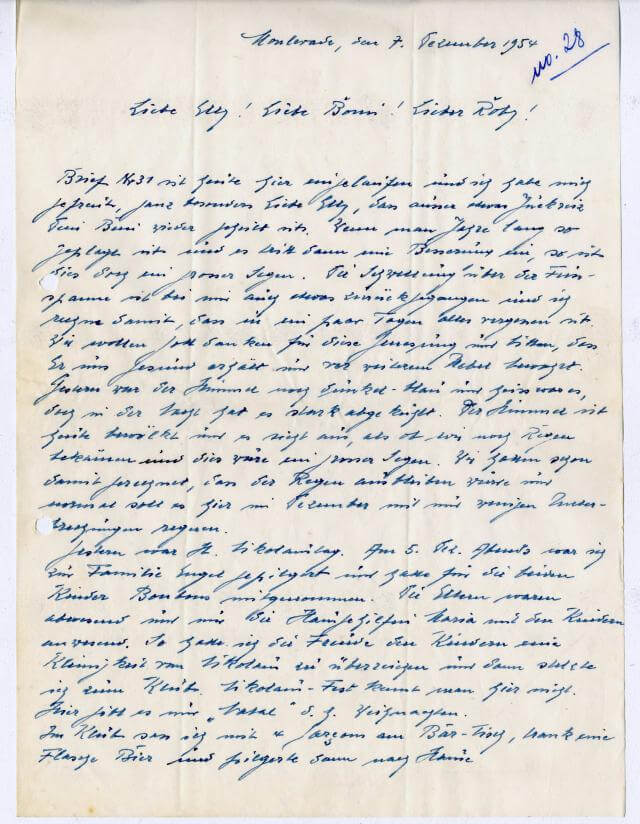 Monlevade, den 7. Dezember 1954
no. 28
Liebe Elly! Liebe Bomi! Lieber Roby!
Brief No 31 ist heute hier eingelaufen und ich habe mich
gefreut, ganz besonders Liebe Elly, dass ausser etwas Juckreiz
dein Bein wieder geheilt ist. Wenn man Jahre lang so
geplagt ist und es tritt dann eine Besserung ein, so ist
dies doch ein grosser Segen. Die Schwellung über der Fuss-
spanne ist bei mir auch etwas zurückgegangen und ich
rechne damit, dass in ein paar Tagen alles vergessen ist.
Wir wollen Gott danken für diese Genesung und bitten, dass
Er uns gesund erhält und vor weiterem Uebel bewahrt.
Gestern war der Himmel noch dunkel-blau und heiss war es,
doch in der Nacht hat es stark abgekühlt. Der Himmel ist
heute bewölkt und es sieht aus, als ob wir noch Regen
bekämen und dies wäre ein grosser Segen. Wir haben schon
damit gerechnet, dass der Regen ausbleiben würde und
normal soll es hier im Dezember mit nur wenigen Unter-
brechungen regnen.
Gestern war St. Nikolaustag. Am 5. Dez. Abends war ich
zur Familie Engel gepilgert und hatte für die beiden
Kinder Bonbons mitgenommen. Die Eltern waren
abwesend und nur die Haushgehilfin Maria mit den Kindern
anwesend. So hatte ich die Freude den Kindern eine
Kleinigkeit von Nikolaus zu überreichen und dann
ich zum Klub. Nikolaus-Fest kennt man hier nicht.
Hier gibt es nur "Natal" d. h. Weihnachten.
Im Klub sass ich mit 4 garçons am Bar-Tisch, trank eine
Flasche Bier und pilgerte dann nach Hause